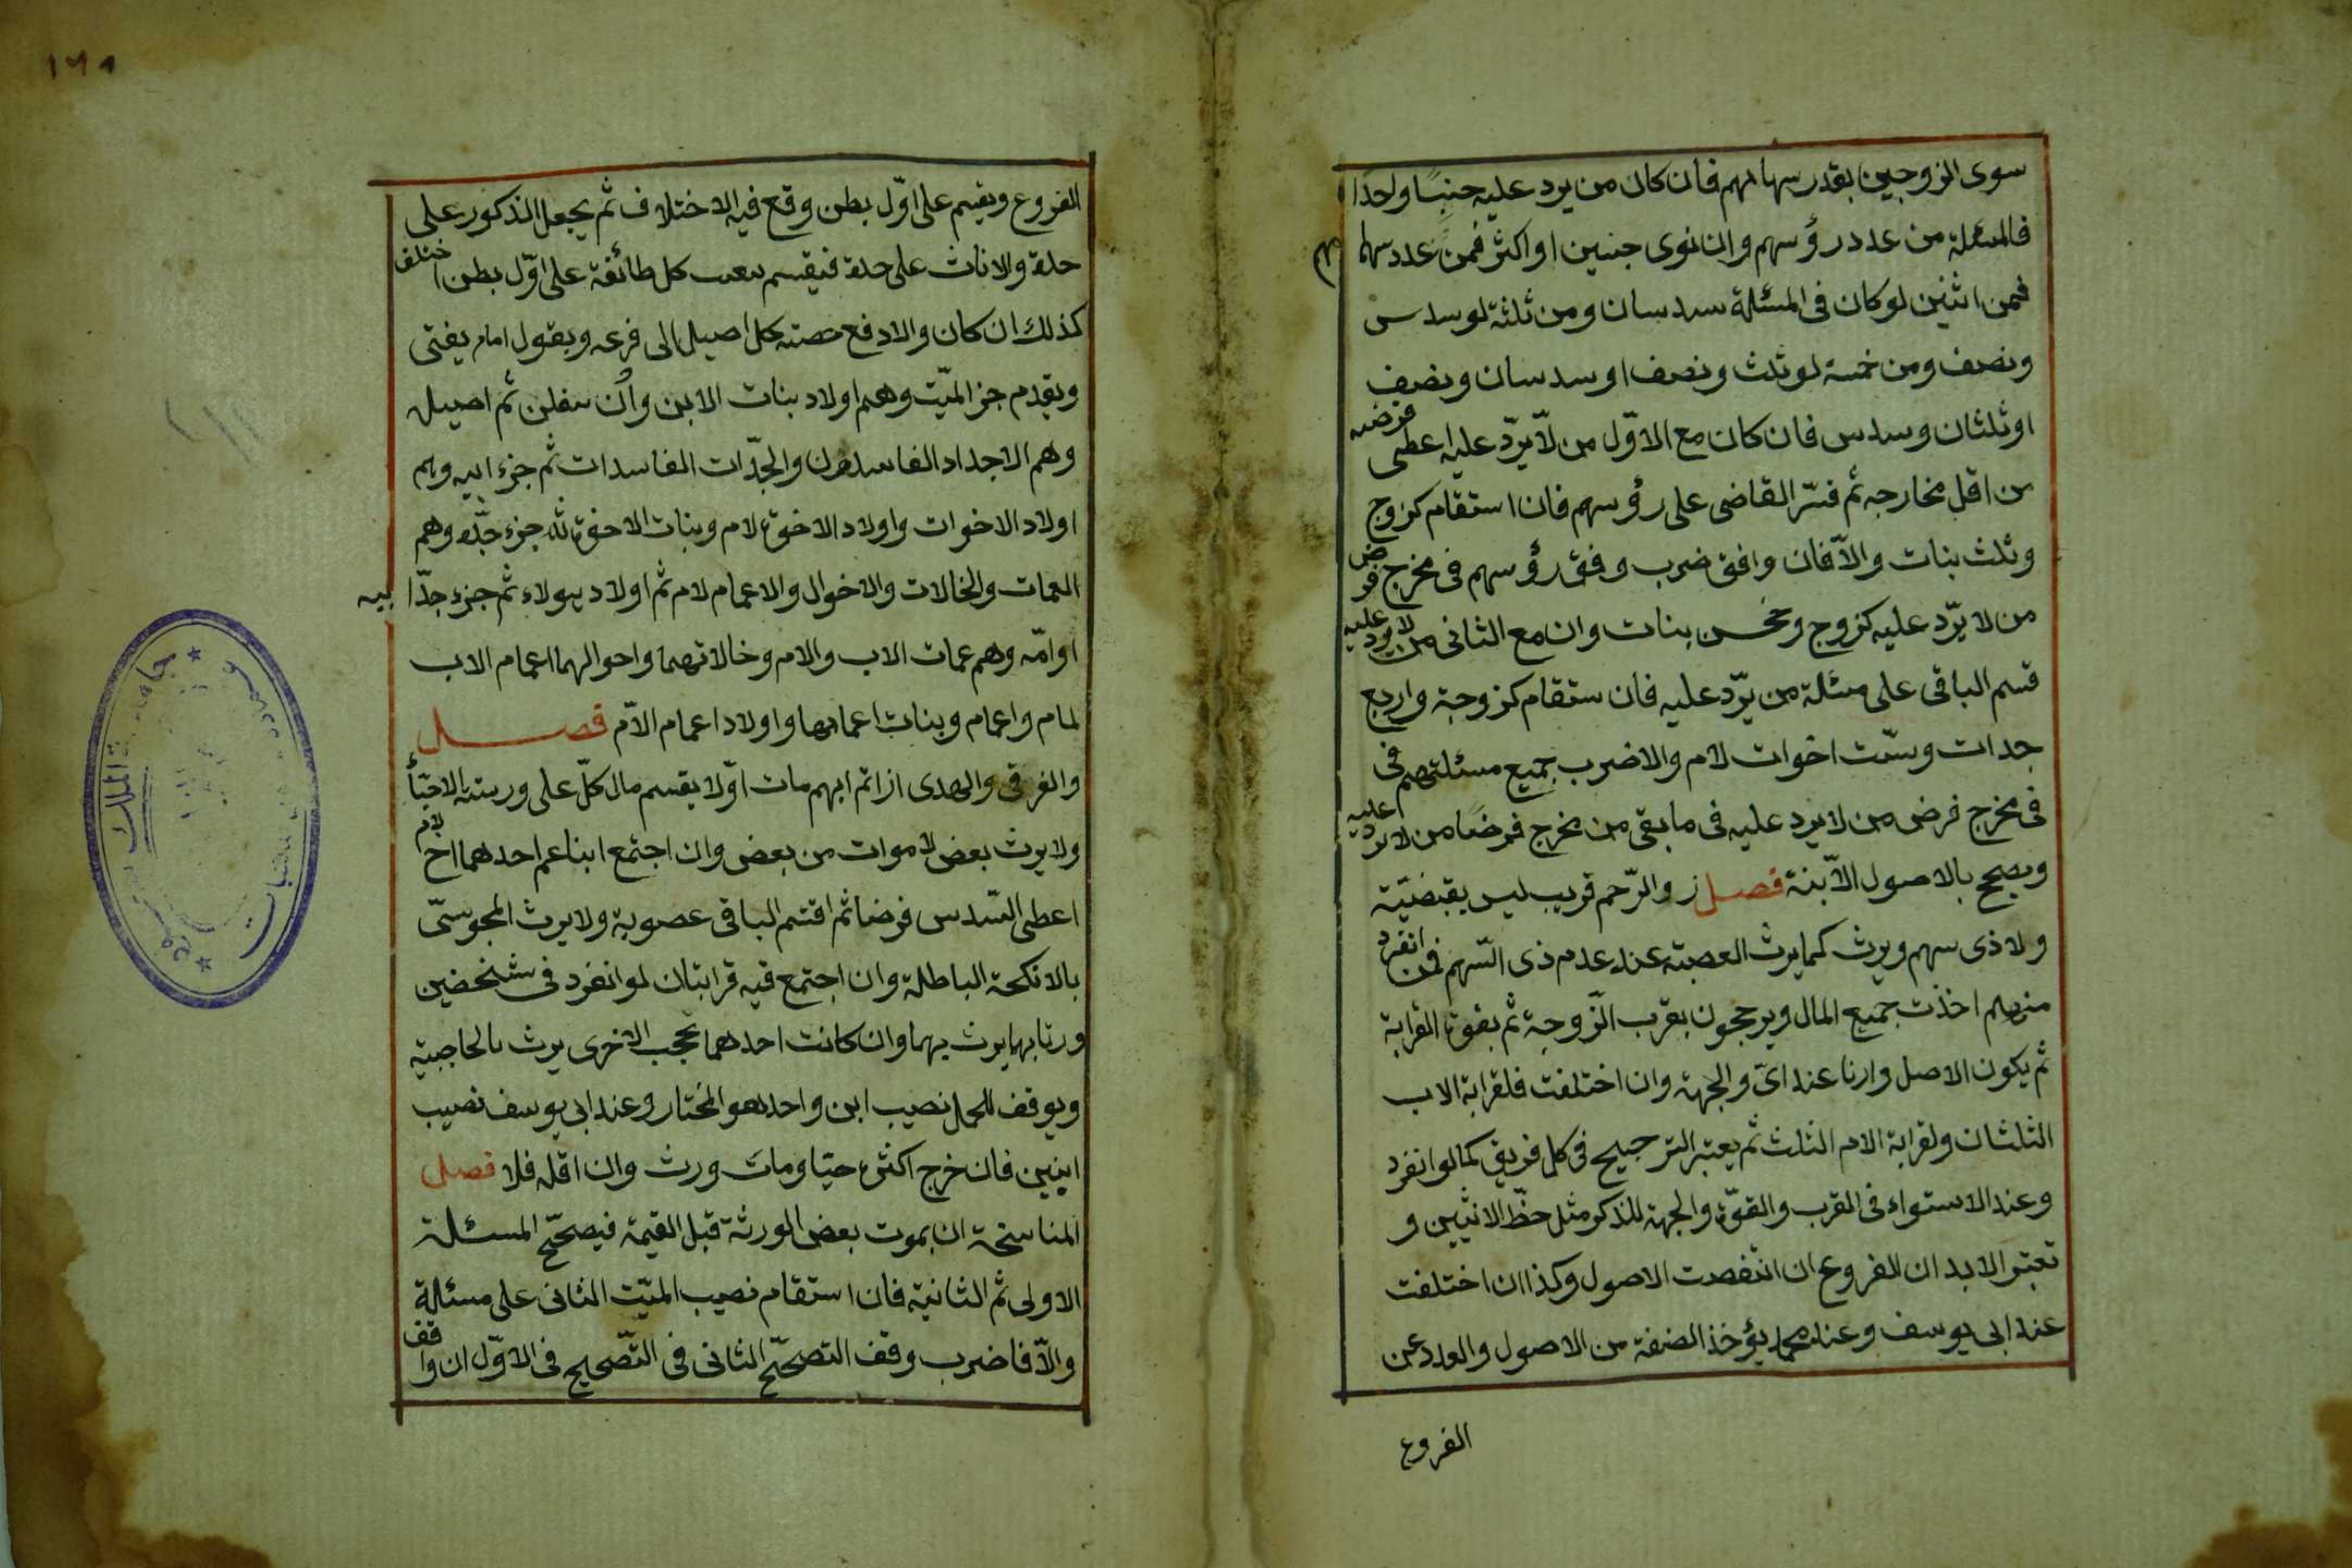 سوى الزوجين بقدر سهامهم فان كان من يرد عليه جنبًا واحدًا
فالمسئلة من عدد رؤسهم وان نوى جنبين او اكثر فمن عدد سهامهم
فمن اثنين لو كان فى المسئلة سدسان ومن ثلثة لو سدس
ونصف ومن خمسة لو ثلث ونصف او سدسان ونصف
او ثلثان وسدس فان كان مع الاوّل من لا يردّ عليه اعطى فرضه
من اقل مخارجه ثم قسّر القاضى على رؤسهم فان استقام كزوج
وثلث بنات والاّ فان وافق ضرب وفق رؤسهم فى مخرج فرض
من لا يرّد عليه كزوج وخمس بنات وان مع الثانى من لا يرد عليه
قسم الباقى على مسئلة من يرّد عليه فان ستقام كزوجة واربع
جدات وستّ اخوات لام والا ضرب جميع مسئلتهم فى
فى مخرج فرض من لا يرد عليه فى ما بقى من مخرج فرضًا من لا يرد عليه
ويصح بالاصول الاّبنة فصل ز والرّحم قريب ليس بقبضيّة
ولا ذى سهم ويرث كما يرث العصبة عند عدم ذى السّهم فمن انفرد
منهم اخذت جميع المال ويرججون بقرب الزّوجة ثم بقوة القرابة
ثم يكون الاصل وارنا عند اىّ والجهة وان اختلفت فلقرابة الاب
الثلثان ولقرابة الام الثلث ثم يعتبر الترجيح فى كل فريق كما لو انفرد
وعند الاستواء فى القرب والقوّة والجهة للذكر مثل حظّ الانثيين و
تعتبر الابدان للفروع ان اتفصت الاصول وكذا ان اختلفت
عند ابى يوسف وعند محمد يؤخذ الضفة من الاصول والعدد عن
الفروع
١٦٨
الفروع ويقسم على اوّل بطن وقع فيه الاختلاف ثم يجعل الذكور على
حدة والاناث على حدة فيقسم نصب كل طائفة على اوّل بطن اختلف
كذلك ان كان والا دفع حصته كل اصيل الى فرعه وبقول امام يفتى
ويقدم جز الميّت وهم اولاد بنات الابن وان سفلن ثم اصيله
وهم الاجداد الفاسدون والجدّات الفاسدات ثم جزء ابيه وهم
اولاد الاخوات واولاد الاخوة لام وبنات الاخوة ثم جزء جدّه وهم
العمات والخالات والاخوال والاعمام لام ثم اولاد هولاء ثم جزء جدّ ابيه
او امّه وهم عمات الاب والام وخالاتهما واحوالهما اعمام الاب
لمام واعمام وبنات اعمامها واولاد اعمام الاّم فصل
والغرقى والهدى ازاتم ايهم مات اوّلا يقسم مال كلّ على ورسته الاحيّأ
ولا يرث بعض لاموات من بعض وان اجتمع ابنا عم احدهما اخ لام
اعطى السّدس فرضا ثم اقتسم الباقى عصوبة ولا يرث المجوسىّ
بالانكحة الباطلة وان اجتمع فيه قرابتان لو انفرد فى شنخضين
ورثا بهما يرث بهما وان كانت احدهما تحجب الاخرى يرث بالحاجبية
ويوقف للحمل نصيب ابن واحد هو المختار وعند ابى يوسف نصيب
ابنين فان خرج اكثره حيّا ومات ورث وان اقله فلا فصل
المناسخة ان بموت بعض الورثة قبل القيمة فيصحّح المسئلة
الاولى ثم الثانية فان استقام نصيب الميّت الثانى على مسئلة
والاّ فاضرب وقف التصحّح الثانى فى التّصحيح فى الاوّل ان وافق